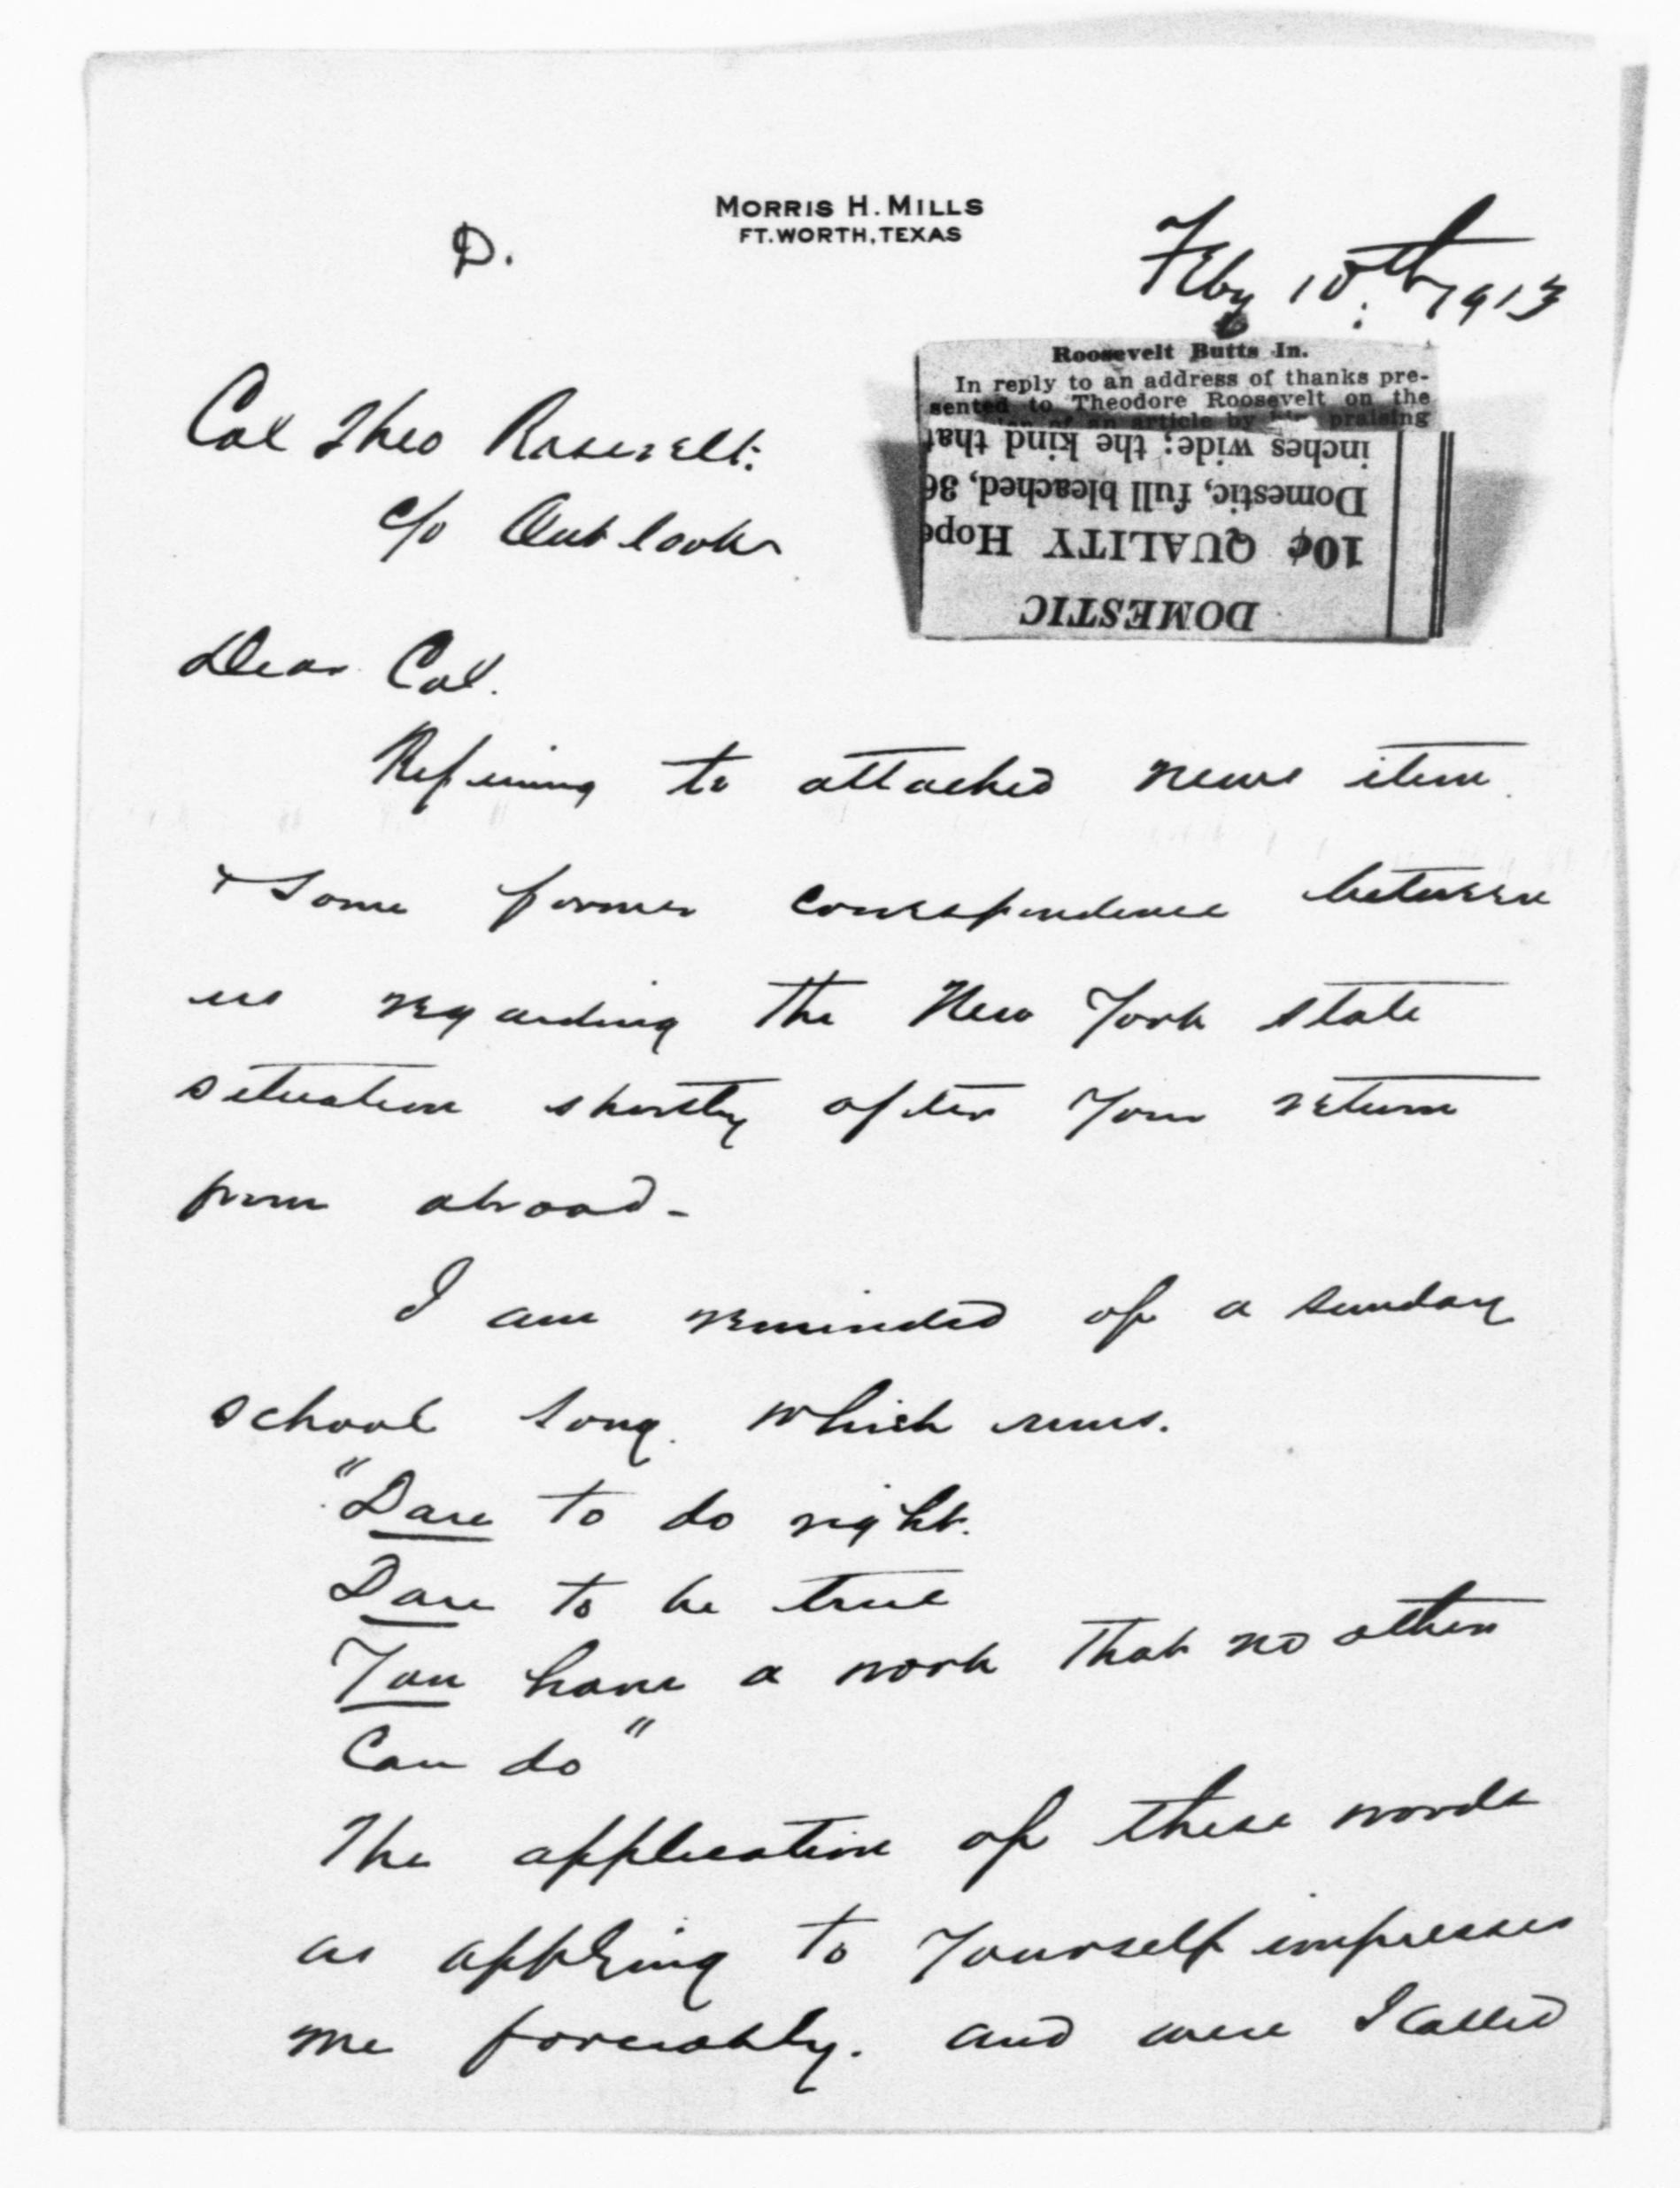 MORRIS H. MILLS
FT. WORTH, TEXAS
D.
Feby 10th 1913
Roosevelt Butts In.
In reply to an address of thanks pre-
sented to Theodore Roosevelt on the
of an article by him praising
inches wide; the kind that
Domestic, full bleached, 36
10¢ QUALITY Hope
DOMESTIC
Col Theo Roosevelt:
c/o Outlook
Dear Col.
Refering to attached news item.
+ some former correspondence between
us regarding the New York state
situation shortly after your return
from abroad-
I am reminded of a sunday
school song. which runs.
"Dare to do right.
Dare to be true
You have a work that no other
Can do"
The application of these words
as applying to yourself impresses
me forceably. and were I called